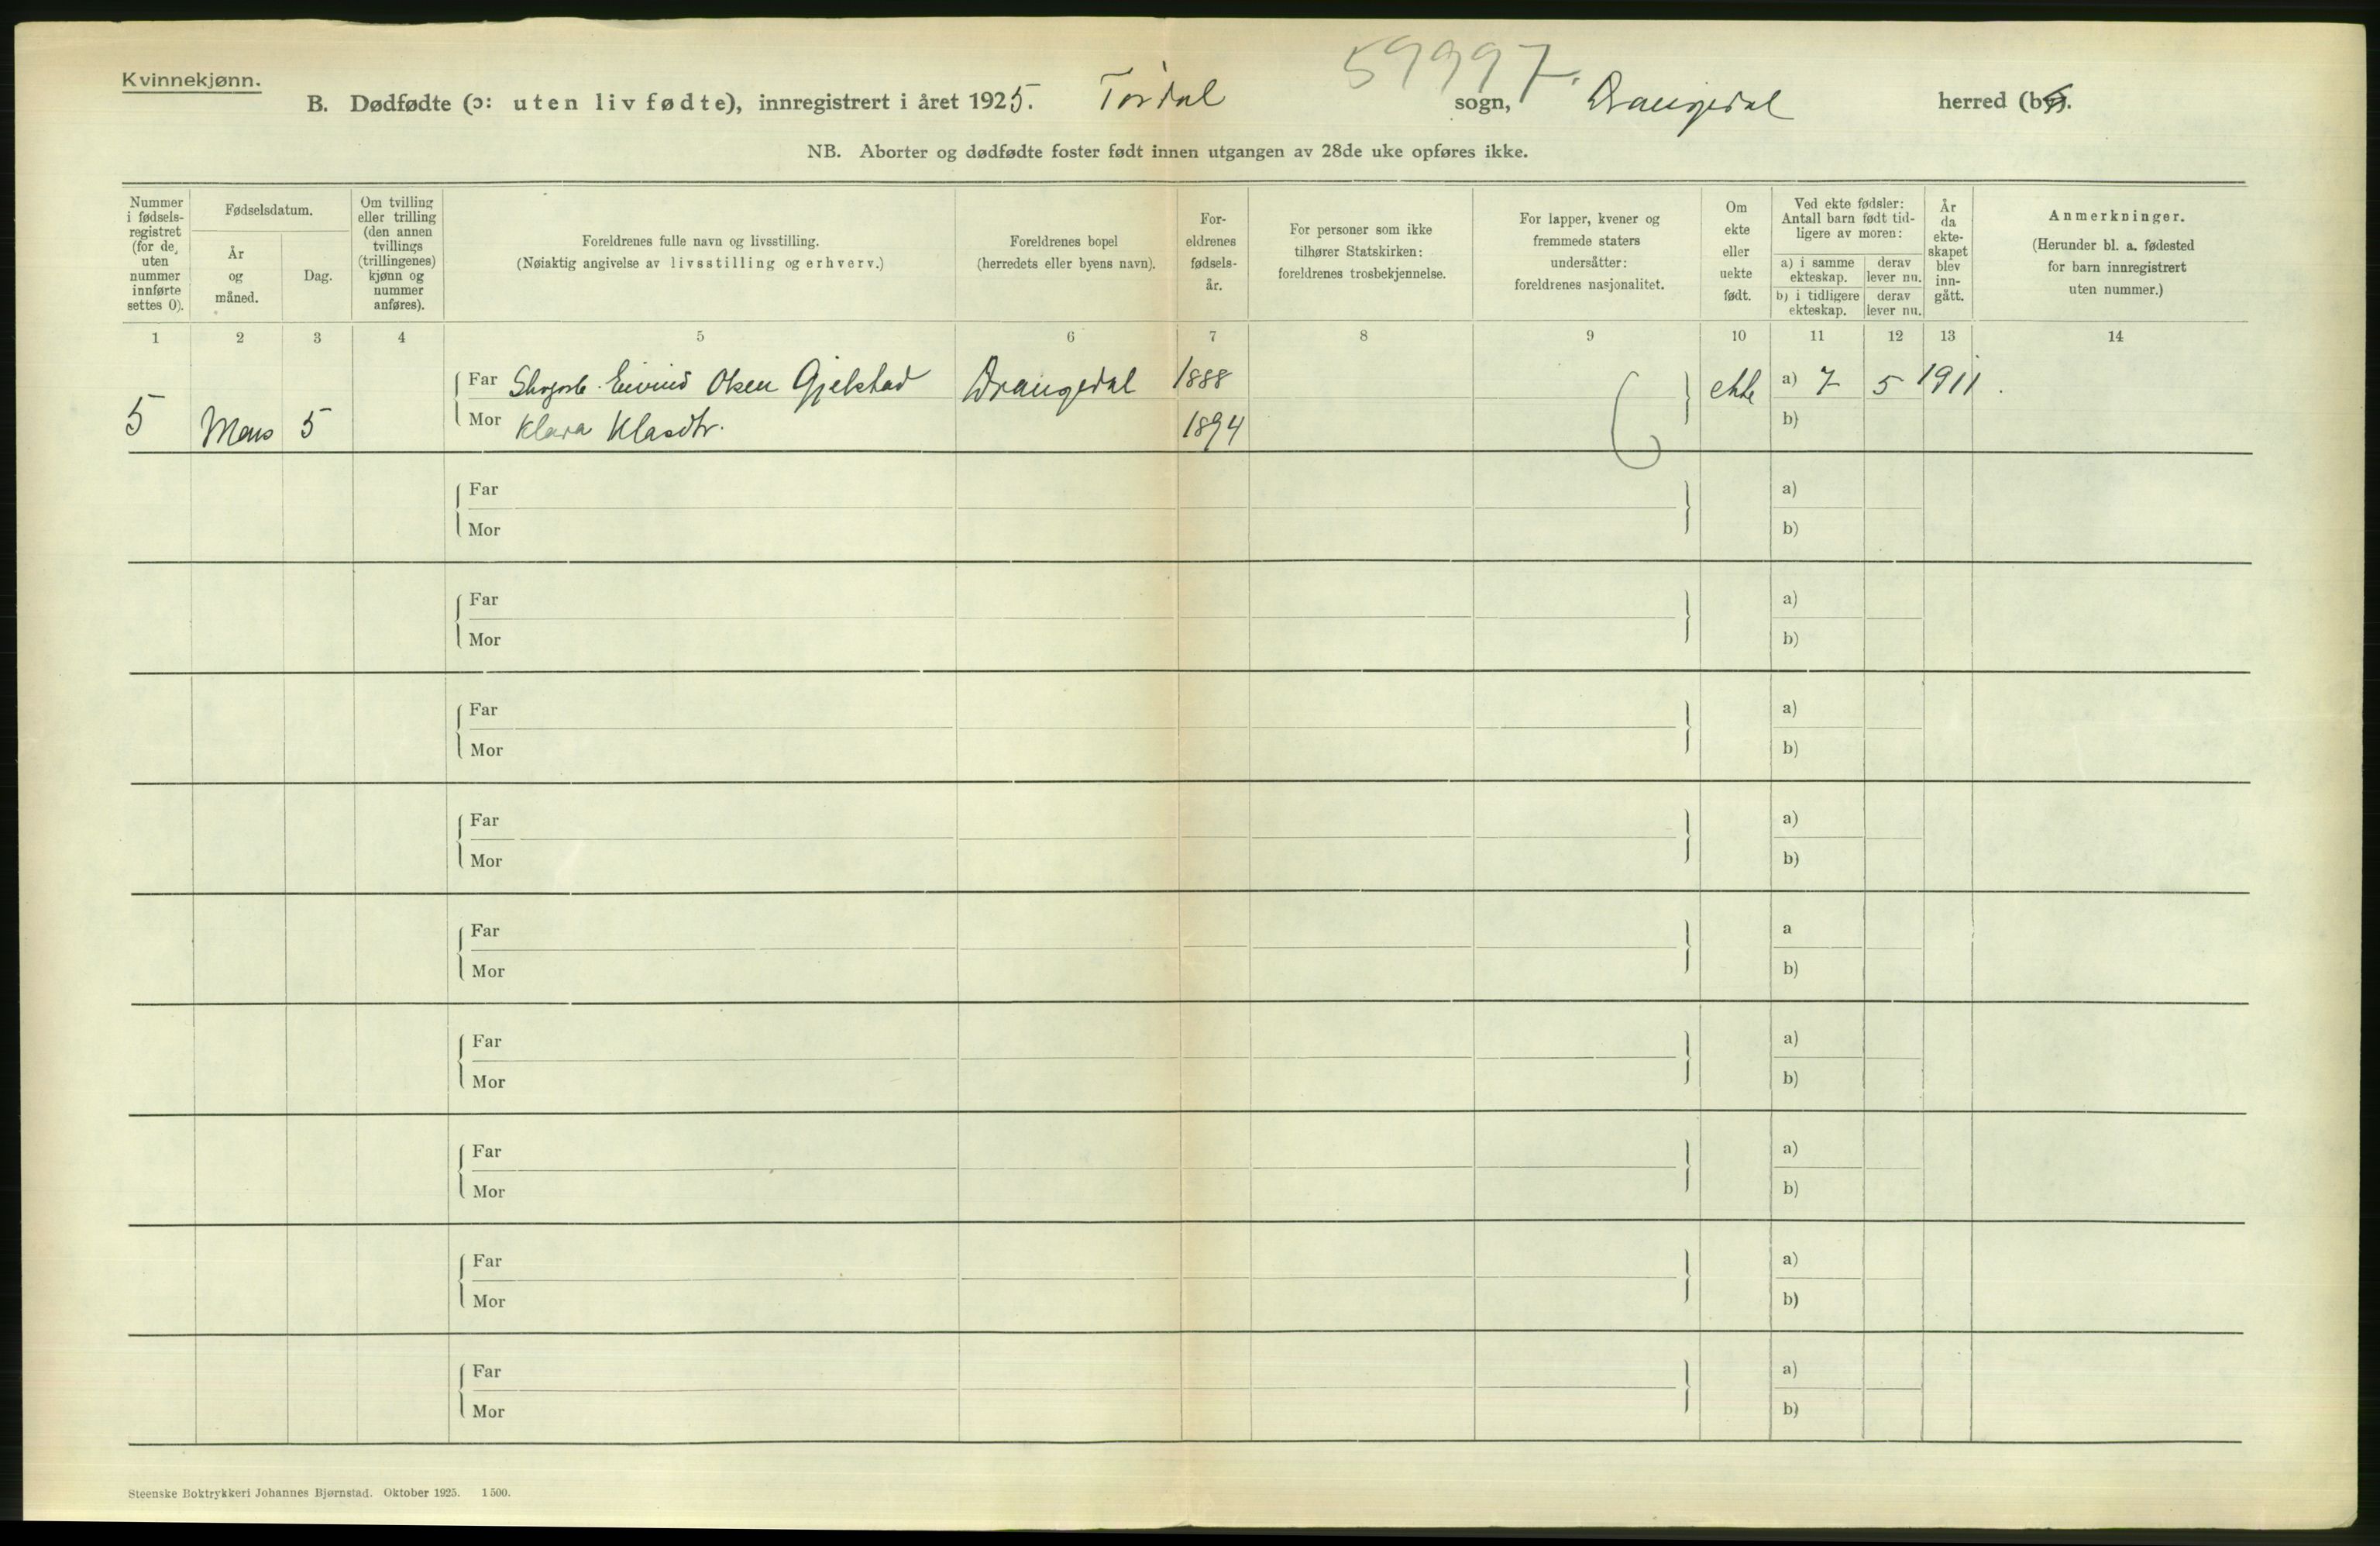 Kvinnekjønn.
59997.
B. Dødfødte (ɔ: uten liv fødte), innregistrert i året 1925. Tørdal sogn, Drangedal herred (by).
NB. Aborter og dødfødte foster født innen utgangen av 28de uke opføres ikke.
Nummer i fødsels-registret (for de uten nummer innførte settes 0).
Fødselsdatum.
År og måned.
Dag.
Om tvilling eller trilling (den annen tvillings (trillingenes) kjønn og nummer anføres).
Foreldrenes fulle navn og livsstilling.
(Nøiaktig angivelse av livsstilling og erhverv.)
Foreldrenes bopel
(herredets eller byens navn).
For-eldrenes fødsels-år.
For personer som ikke tilhører Statskirken: foreldrenes trosbekjennelse.
For lapper, kvener og fremmede staters undersåtter: foreldrenes nasjonalitet.
Om ekte eller uekte født.
Ved ekte fødsler: Antall barn født tid-ligere av moren:
a) i samme ekteskap. derav lever nu.
b) i tidligere ekteskap. derav lever nu.
År da ekte-skapet blev inn-gått.
Anmerkninger.
(Herunder bl. a. fødested for barn innregistrert uten nummer.)
1 2 3 4 5 6 7 8 9 10 11 12 13 14
Far Eivind Olsen Gjelstad Drangedal 1888 ekte a) 7 5 1911.
5 Mars 5 Mor Klara Klasdtr. 1894 b)
Far a)
Mor b)
Far a)
Mor b)
Far a)
Mor b)
Far a)
Mor b)
Far a
Mor b)
Far a)
Mor b)
Far a)
Mor b)
Far a)
Mor b)
Far a)
Mor b)
Steenske Boktrykkeri Johannes Bjørnstad. Oktober 1925. 1500.